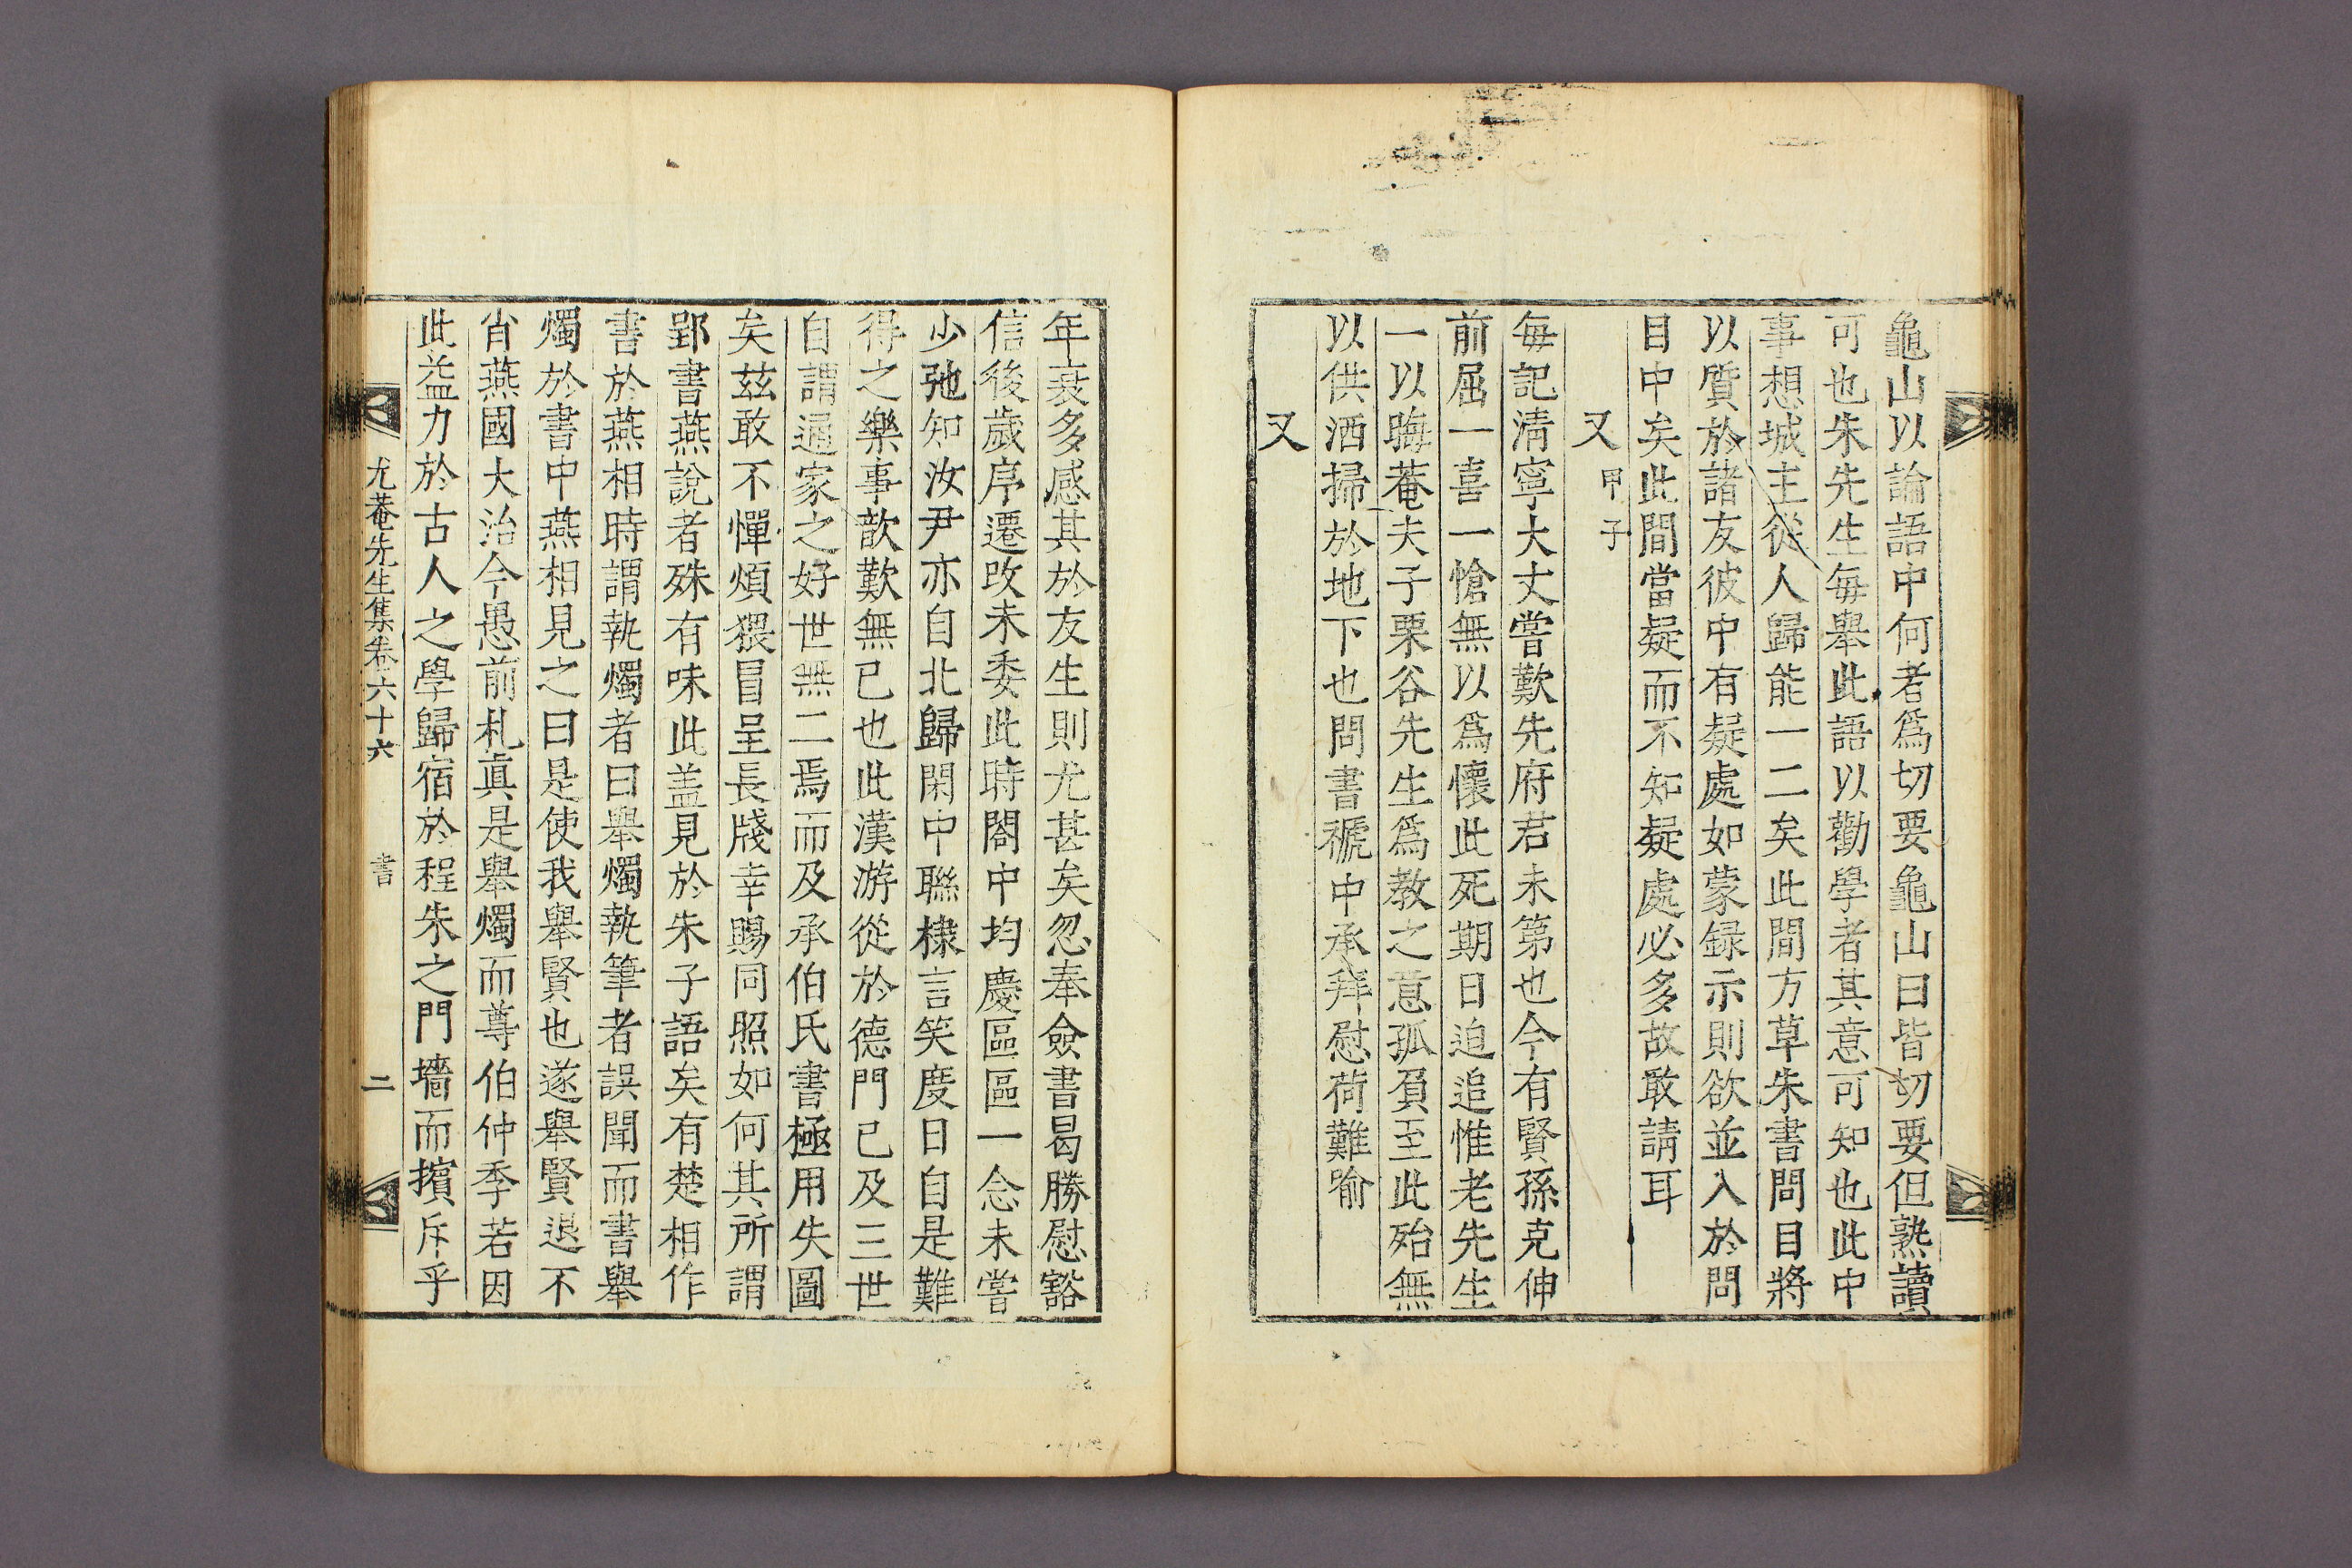 龜山以論語中何者爲切要龜山曰皆切要但熟讀
可也朱先生每舉此語以勸學者其意可知也此中
事想城主從人歸能一二矣此間方草朱書問目將
以質於諸友彼中有疑處如蒙録示則欲並入於問
目中矣此間當疑而不知疑處必多故敢請耳
又 甲子
每記清寧大丈嘗歎先府君未第也今有賢孫克伸
前屈一喜一愴無以爲懷此死期日迫追惟老先生
一以晦菴夫子栗谷先生爲教之意孤負至此殆無
以供洒掃於地下也問書褫中承拜慰荷難喻
又
年衰多感其於友生則尤甚矣忽奉僉書曷勝慰豁
信後歲序遷改未委此時閤中均慶區區一念未嘗
少弛知汝尹亦自北歸閑中聯棣言笑度日自是難
得之樂事歆歎無已也此漢游從於德門已及三世
自謂通家之好世無二焉而及承伯氏書極用失圖
矣茲敢不憚煩猥冒呈長牋幸賜同照如何其所謂
郢書燕說者殊有味此盖見於朱子語矣有楚相作
書於燕相時謂執燭者曰舉燭執筆者誤聞而書舉
燭於書中燕相見之曰是使我舉賢也遂舉賢退不
肖燕國大治今愚前札眞是舉燭而尊伯仲季若因
此益力於古人之學歸宿於程朱之門墻而擯斥乎
尤菴先生集卷六十六 書 二